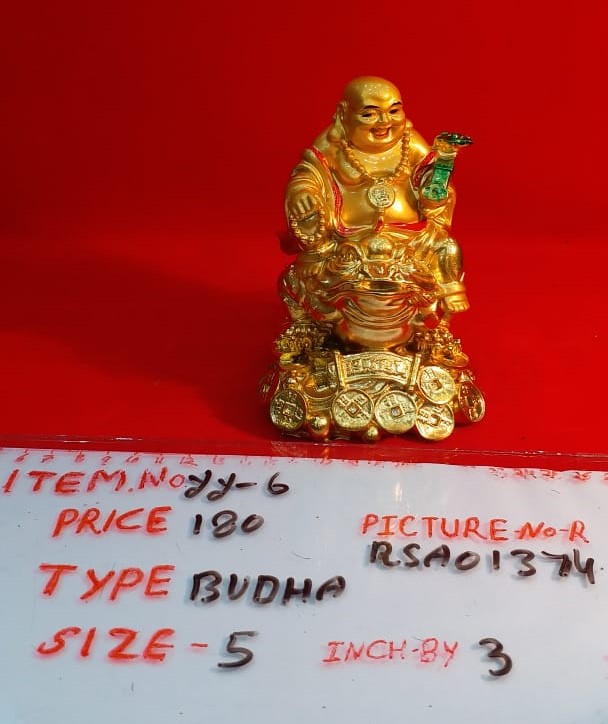 ITEM.No yy-6
PRICE 180
PICTURE-No-R
RSA01374
TYPE BUDHA
SIZE - 5 INCH-BY 3